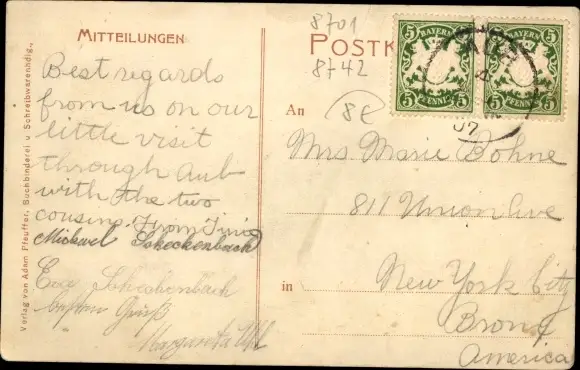 MITTEILUNGEN
Best regards
from us on our
little visit
through Aub
with the two
cousins. From Tinie
Michael Scheckenbach
Eug Scheckenbach
besten Gruß
Margareta
Verlag von Adam Pfeuffer, Buchbinderei u. Schreibwarenhdlg.,
8701
8742
8E
POSTK
BAYERN
5 5
PFENNIG
BAYERN
5 5
PFENNIG
AUB
07
An
Mrs. Marie Bohne
811 Union Ave
in
New York City
Bronx
America